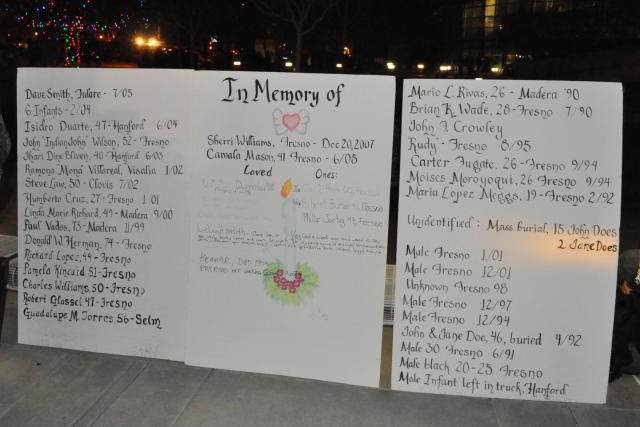 Dave Smith, Tulare - 7/05
6 Infants - 2/04
Isidro Duarte, 47-Hanford 6/04
John "Indian John" Wilson, 52 - Fresno
Jhari Dine Bliven, 40 - Hanford 6/05
Ramona 'Mona' Villareal, Visalia 1/02
Steve Law, 50 - Clovis 7/02
Humberto Cruz, 27 - Fresno 1/01
Linda Marie Richard, 49 - Madera 9/00
Paul Vados, 73 - Madera 11/99
Donald W. Herman, 74 - Fresno
Richard Lopez, 44 - Fresno
Pamela Kincaid 51 - Fresno
Charles Williams, 50 - Fresno
Robert Glassel 47 - Fresno
Guadalupe M. Torres, 56 - Selm
In Memory of
Sherri Williams, Fresno - Dec 20, 2007
Camala Mason, 41 Fresno - 6/05
Loved Ones:
Fresno
Fresno
Mario L Rivas, 26 - Madera '90
Brian K. Wade, 28 - Fresno 7/90
John F. Crowley
Rudy - Fresno 8/95
Carter Fugate, 26 - Fresno 9/94
Moises Moroyoqui, 26 Fresno 9/94
Maria Lopez Meggs, 19 - Fresno 2/92
Unidentified: Mass burial, 15 John Does
2 Jane Does
Male Fresno 1/01
Male Fresno 12/01
Unknown Fresno 98
Male Fresno 12/97
Male Fresno 12/94
John & Jane Doe, 46, buried 4/92
Male 30 Fresno 6/91
Male black 20-25 Fresno
Male Infant left in truck, Hanford